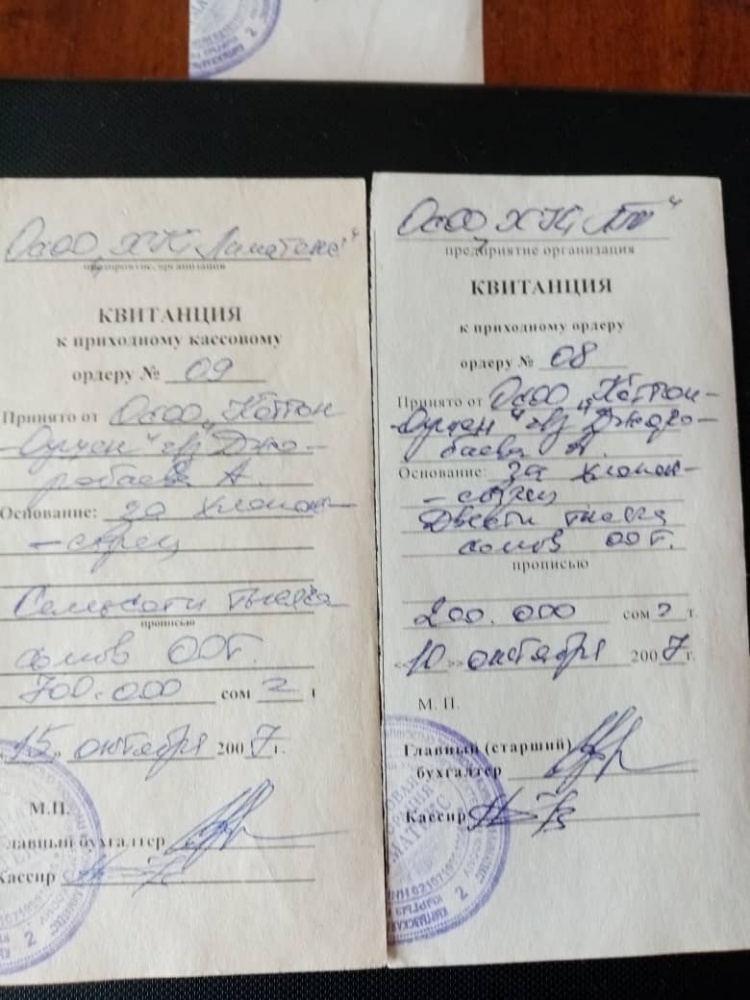 ОсОО „ХК Ламатекс"
предприятие, организация
КВИТАНЦИЯ
к приходному кассовому
ордеру № 09
Принято от ОсОО „Коттон
-Оручен"
рабаева А.
Основание: за хлопок-
-сырец
Семьсот тысяча
прописью
сомов 00 т.
700.000 сом т
"15" октября 2007г.
М.П.
Главный бухгалтер
Кассир
ОсОО ХК „ЛТ"
предприятие организация
КВИТАНЦИЯ
к приходному ордеру
ордеру № 08
Принято от ОсОО „Коттон-
-Оручен"
баева А.
Основание: за хлопок-
-сырец
Двести тысяча
сомов 00 т.
прописью
200.000 сом т.
«10» октября 2007г.
М. П.
Главный (старший)
бухгалтер
Кассир